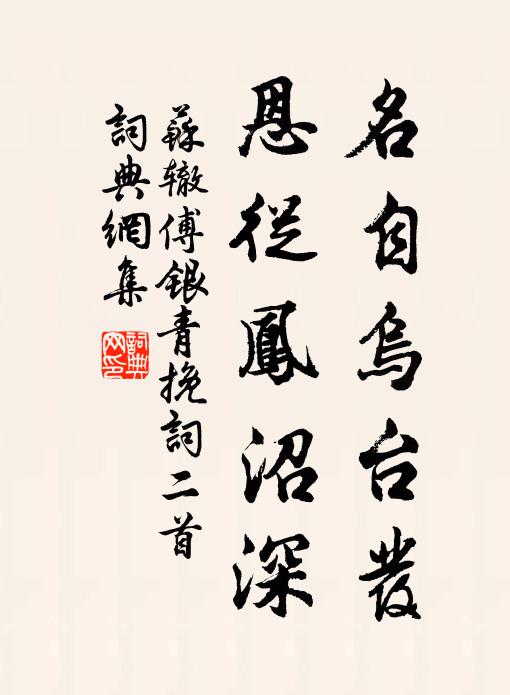 名自烏台發
恩從鳳沼深
蘇辙傅銀青挽詞二首
詞典網集
詞典網印